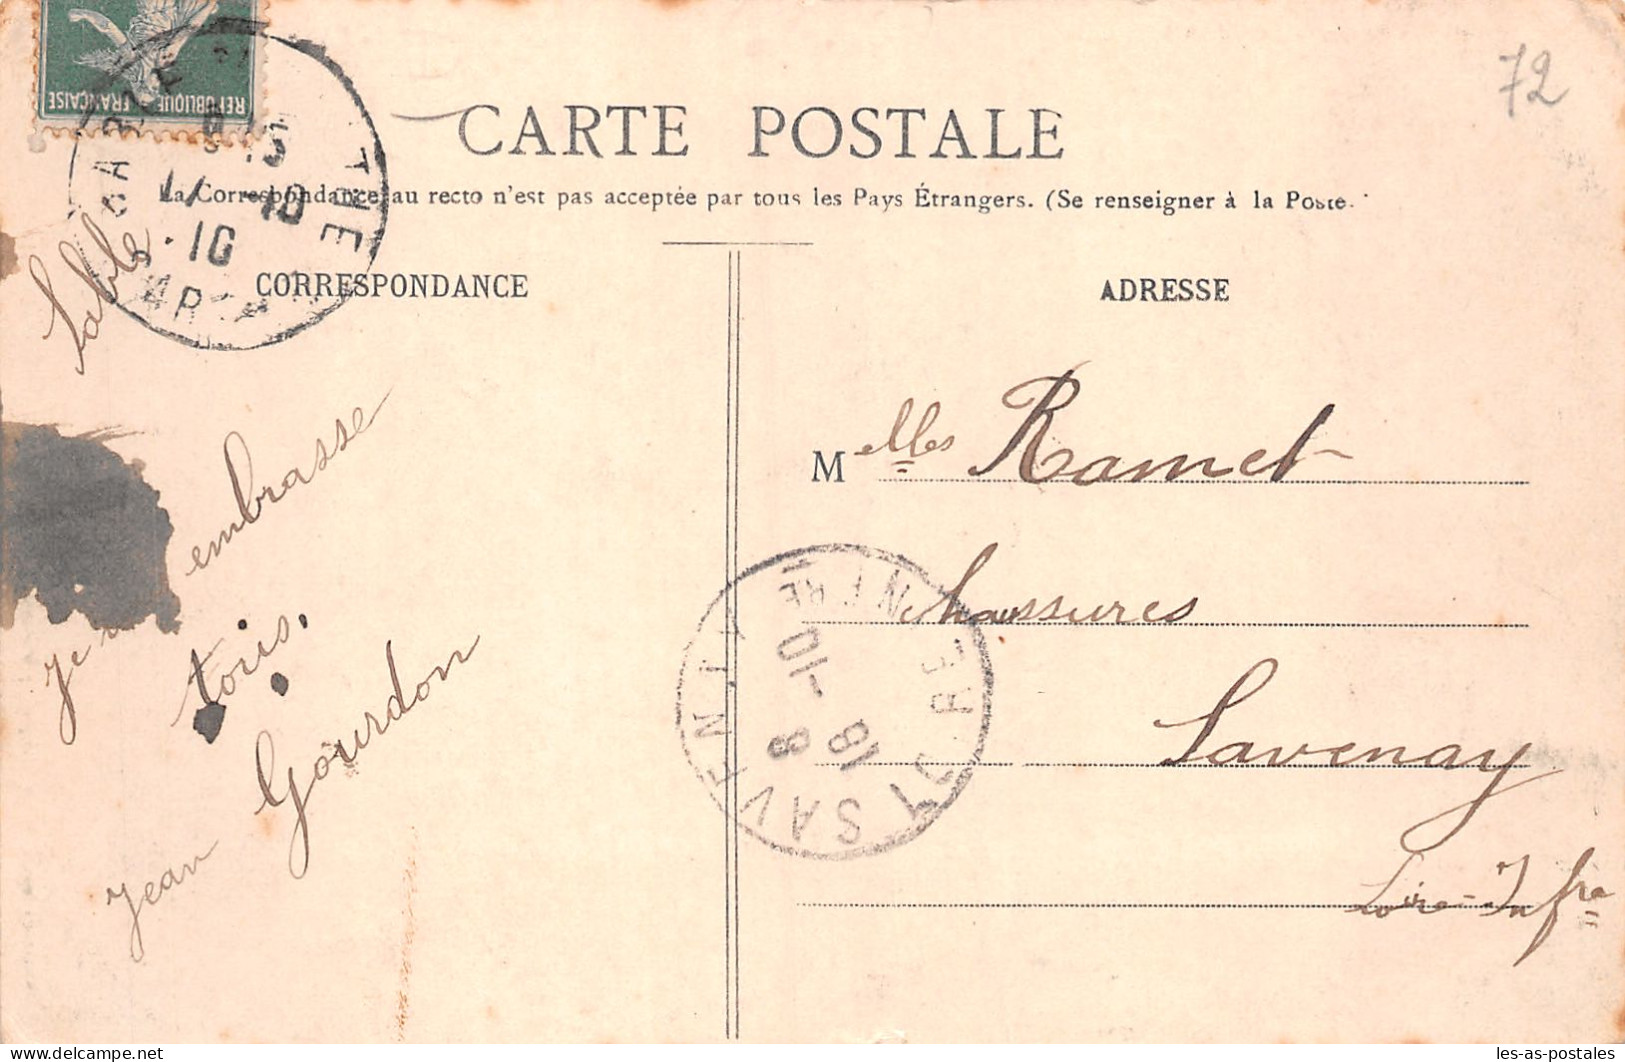 REPUBLIQUE FRANÇAISE
72
CARTE POSTALE
La Correspondance au recto n'est pas acceptée par tous les Pays Étrangers. (Se renseigner à la Poste.
CORRESPONDANCE
Sablé
Je
embrasse
tous.
Jean Gourdon
ADRESSE
Melles Ramet
Chaussures
Savenay
Loire-Infre
17 -10
10
SARTHE
SAVENAY
LOIRE INFRE
8 -10
les-as-postales